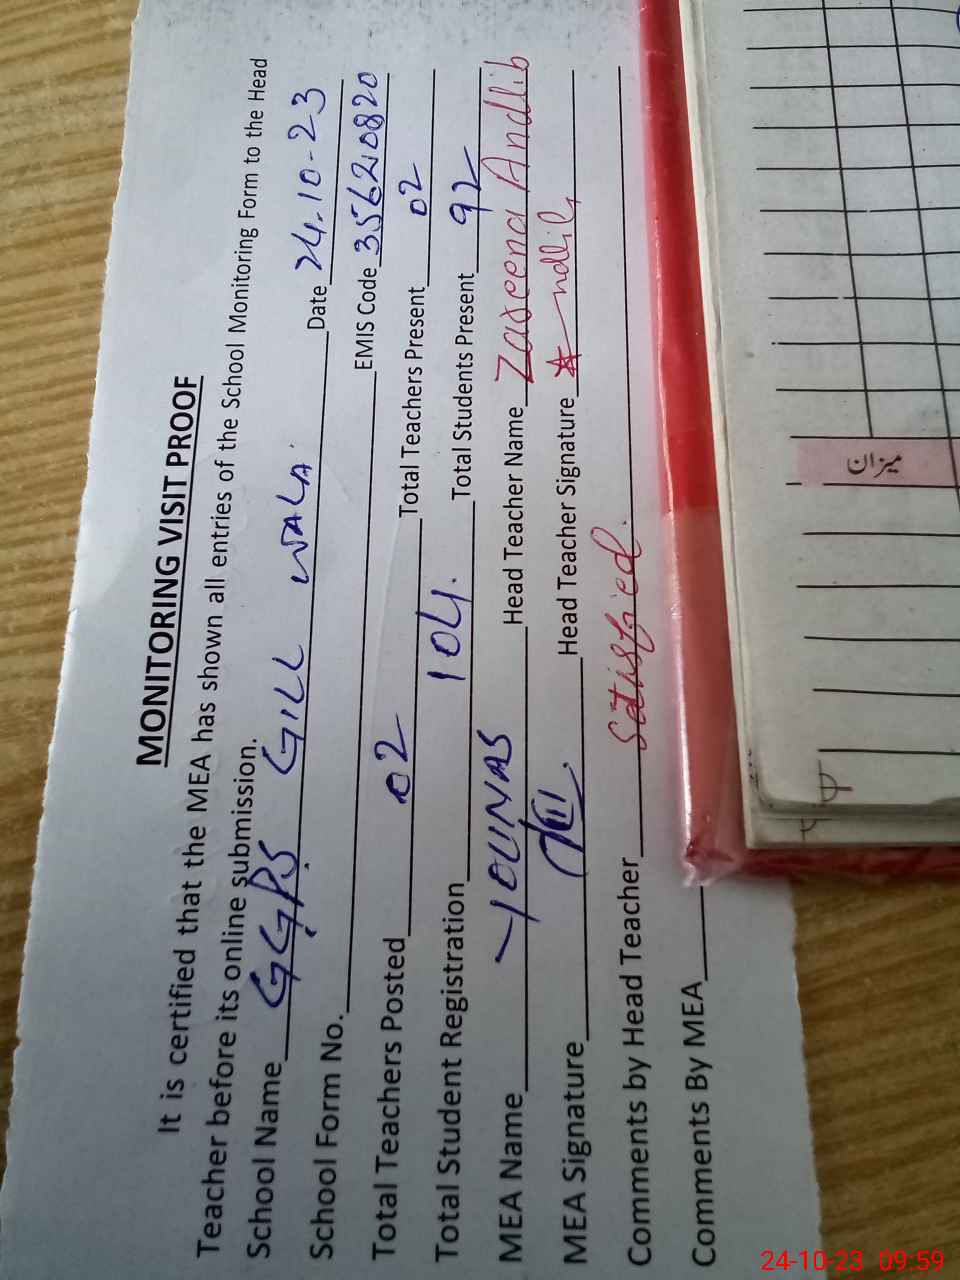 MONITORING VISIT PROOF
It is certified that the MEA has shown all entries of the School Monitoring Form to the Head
Teacher before its online submission.
School Name GGPS GILL WALA Date 24-10-23
School Form No. EMIS Code 35620820
Total Teachers Posted 02 Total Teachers Present 02
Total Student Registration 104 Total Students Present 92
MEA Name YOUNAS Head Teacher Name Zareena Andlib
MEA Signature Head Teacher Signature Andlib
Comments by Head Teacher Satisfied.
Comments By MEA
میزان
24-10-23 09:59